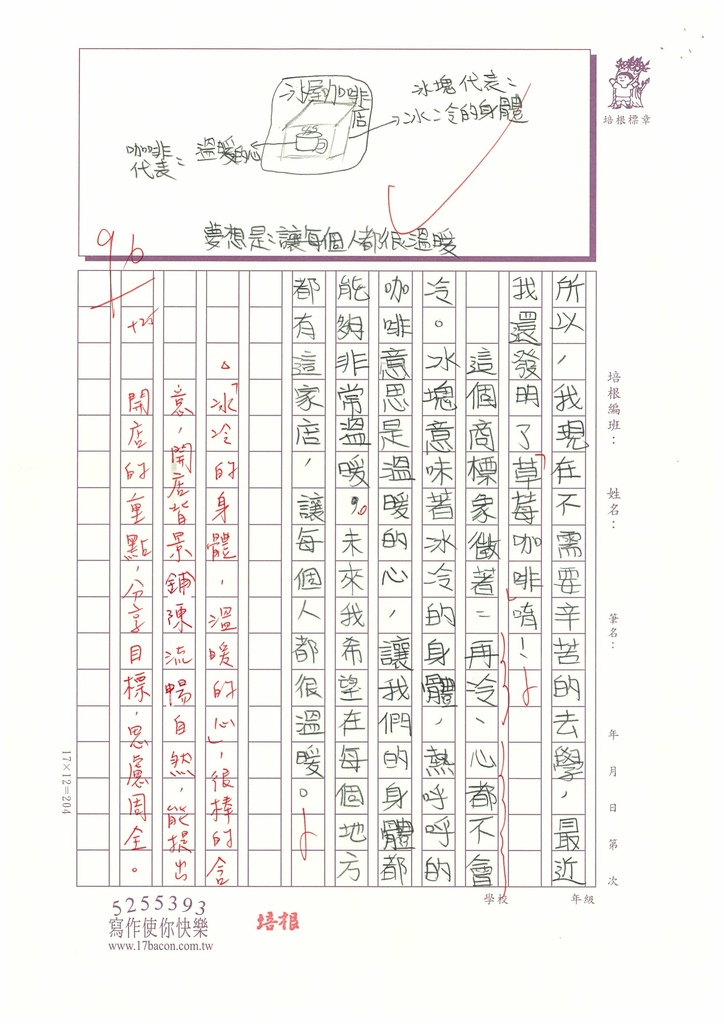 冰屋咖啡店
冰塊代表：
冰冷的身體
咖啡
代表：
溫暖的心
夢想是：讓每個人都很溫暖
培根標章
96
+25
所以，我現在不需要辛苦的去學，最近
我還發明了「草莓咖啡」唷！
這個商標象徵著：再冷、心都不會
冷。冰塊意味著冰冷的身體，熱呼呼的
咖啡意思是溫暖的心，讓我們的身體都
能夠非常溫暖。未來我希望在每個地方
都有這家店，讓每個人都很溫暖。
「冰冷的身體，溫暖的心」，很棒的含
意，開店背景鋪陳流暢自然，能提出
開店的重點，分享目標，思慮周全。
培根編班：
姓名：
筆名：
年 月 日 第 次
學校
年級
17×12=204
5255393
寫作使你快樂
www.17bacon.com.tw
培根